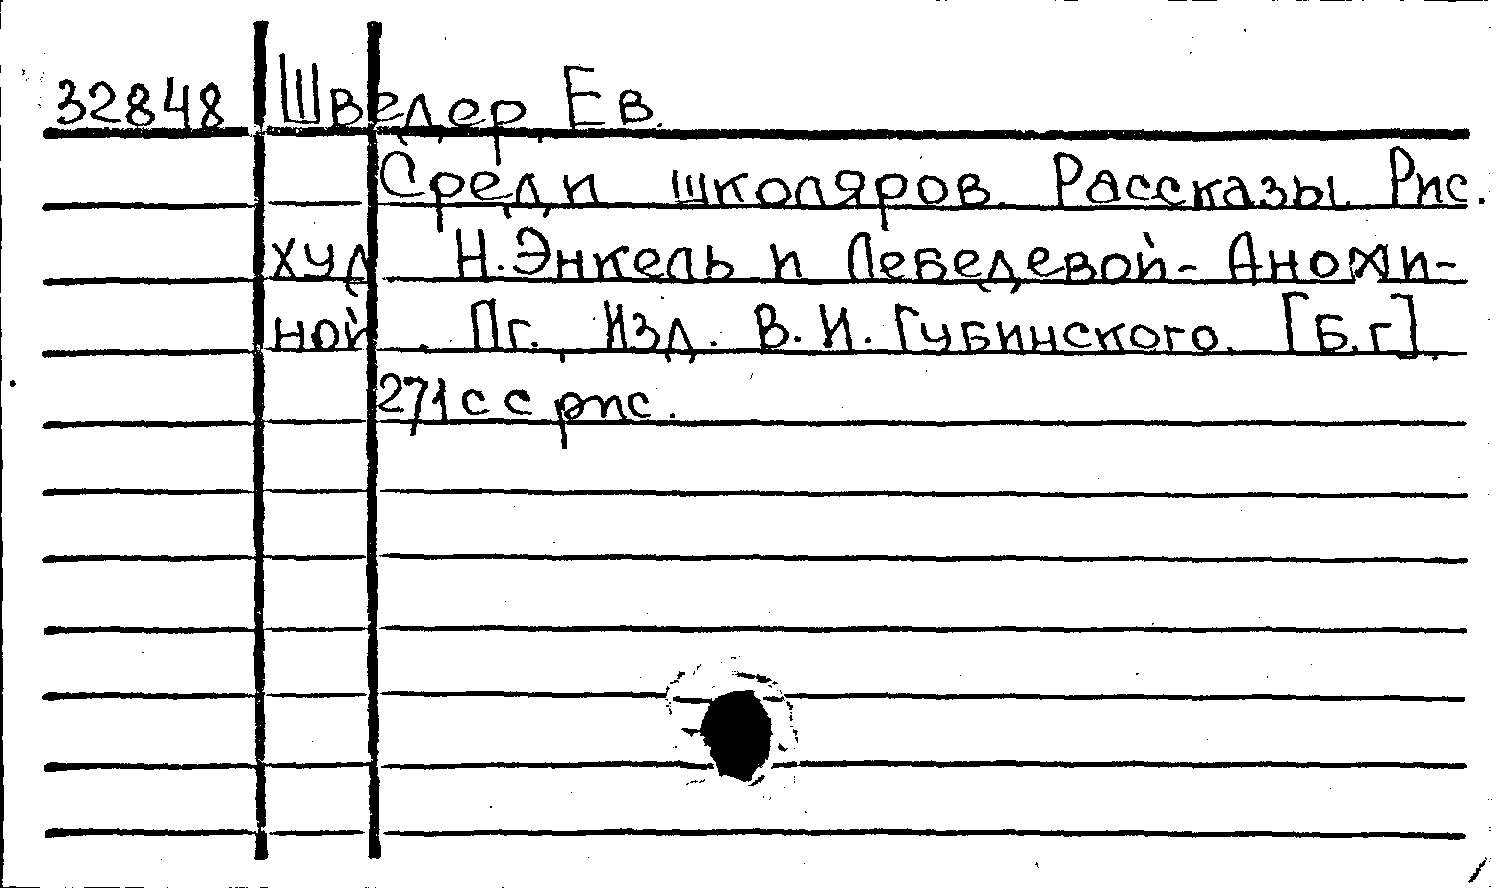 32848 Шведер Ев.
Среди школяров. Рассказы. Рис.
худ Н. Энкель и Лебедевой-Анохи-
ной. Пг., Изд. В. И. Губинского. [Б.г].
271 с с рис.